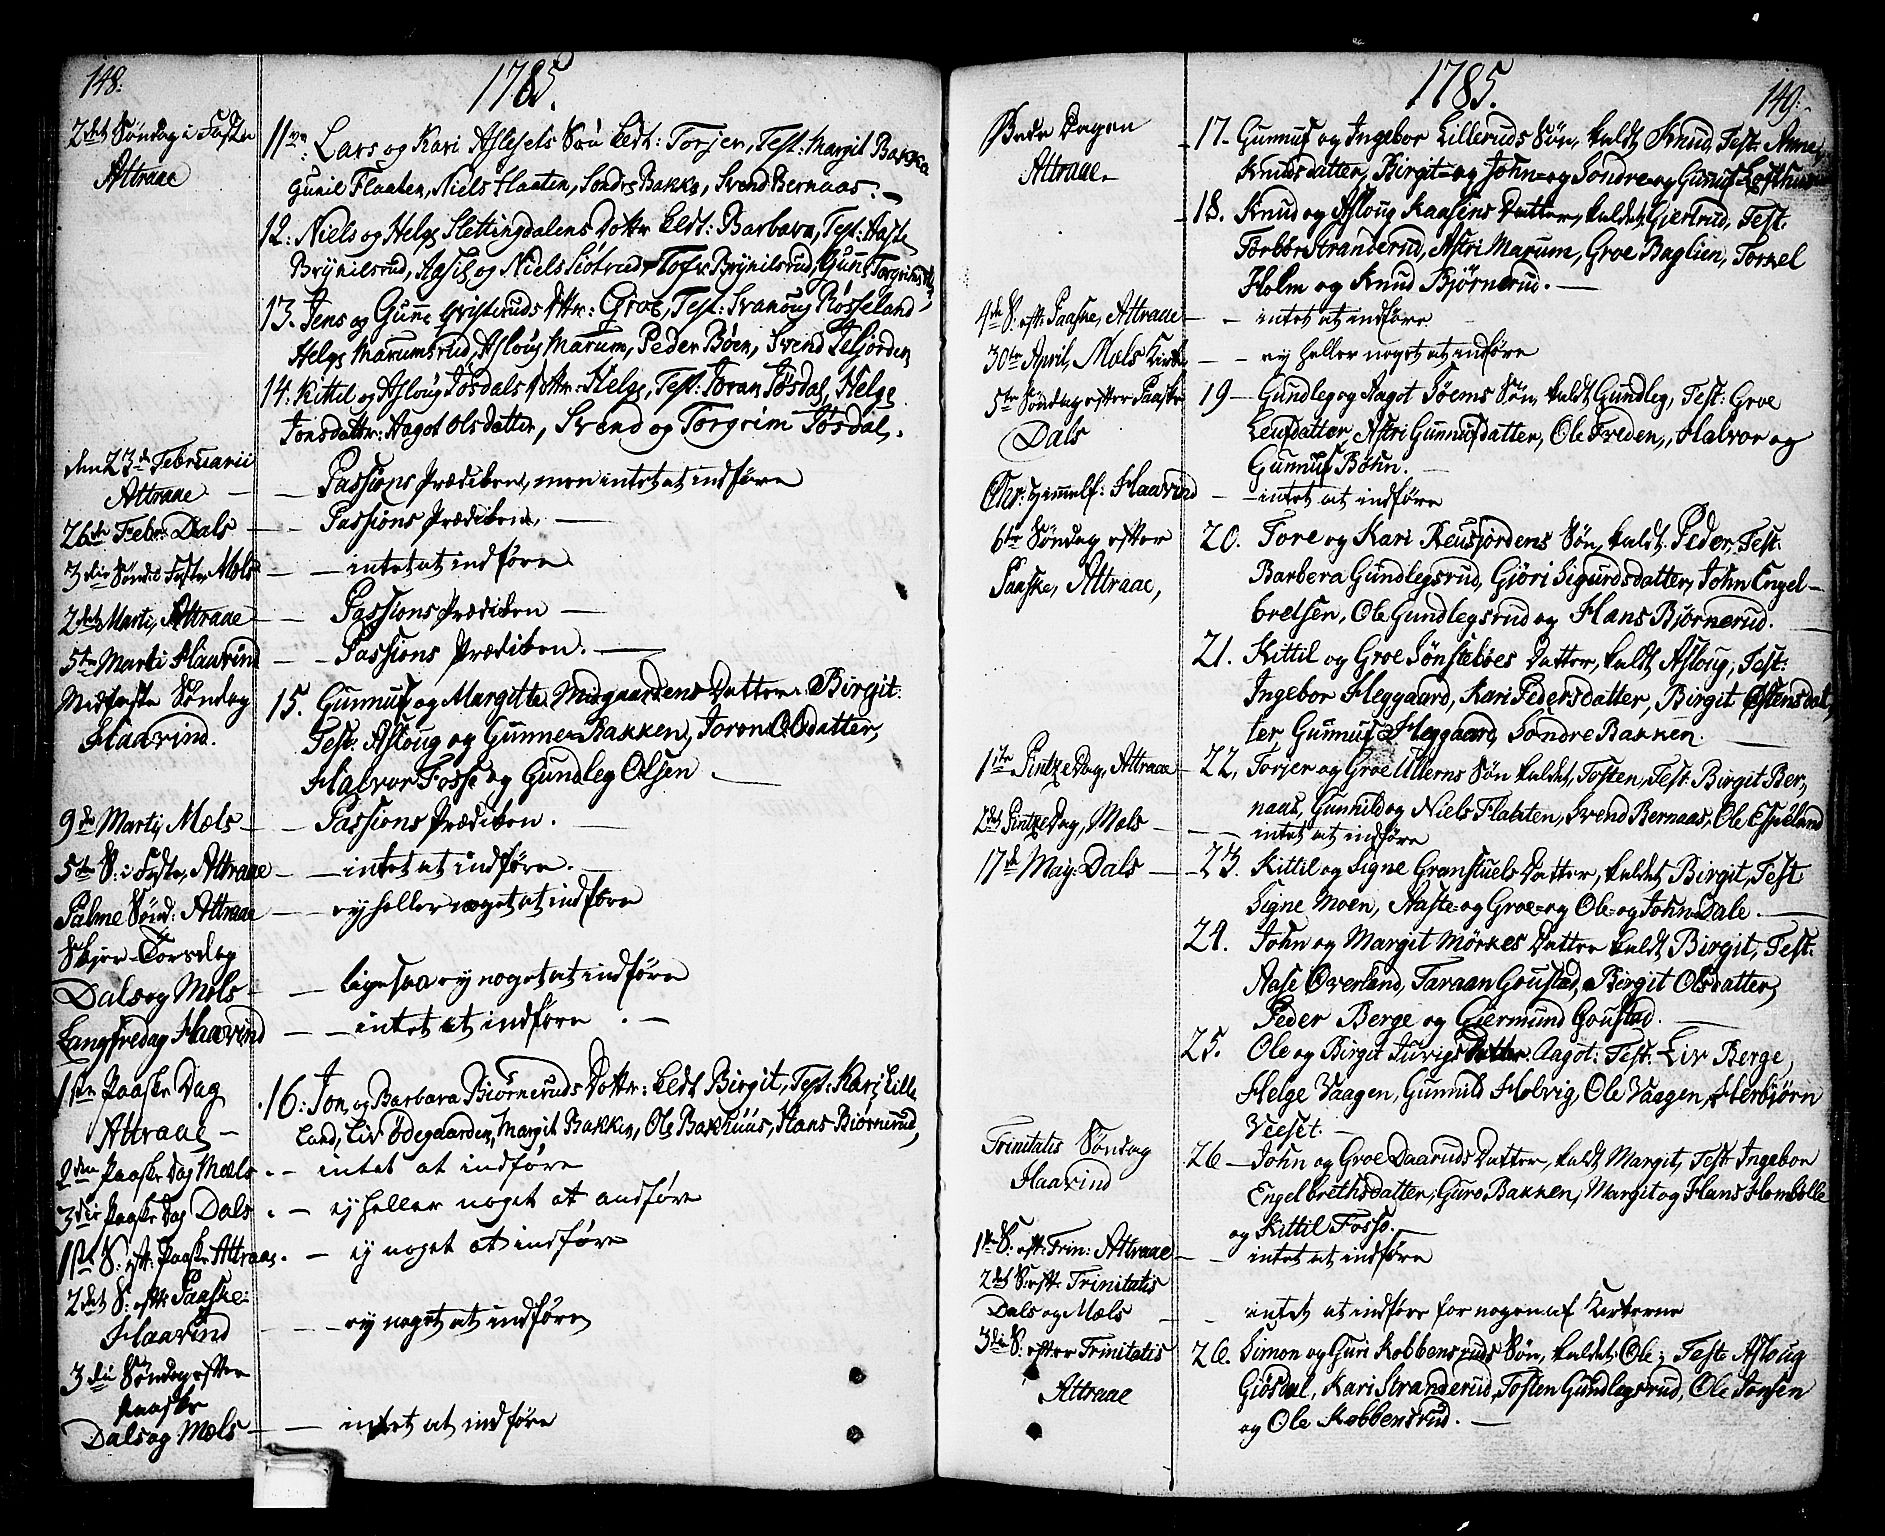 148.
1785.
2det Søndag i Faste
Attraae
11te: Lars og Kari Aslesets Søn kldt: Torjer, Test: Margit Bakka
Gunil Flaaten, Niels Flaaten, Sondre Bakka, Svend Bernaas. —
12: Niels og Helge Slettingdalens Dottr kldt: Barbara, Test: Aaste
Brÿnilsrud, Aasil og Niels Slötrud, Tofr Brÿnilsrud, Gun
13. Jens og Gune Qvisteruds Dttr: Groe, Test: Svanoug Rösseland
Helge Marumsrud, Asloug Marum, Peder Böen, Svend Seljorden
14. Kittil og Asloug Jösdals Dttr: Helge, Test: Joran Jösdal, Helge
Jonsdatter: Aagot Olsdatter, Svend og Torgrim Jösdal.
den 23de Februarii
Attraae — — Passions Prædiken, men intet at indføre
26de Febr: Dals — — Passions Prædiken, —
3die Sönd: i Faste Mæls — — intet at indføre
2det Marti, Attraae — — Passions Prædiken —
5te Marti Haavind — — Passions Prædiken. —
Midfaste Søndag
Haavind.
15. Gunnuf og Margitte Midgaardens Datter: Birgit
Test: Asloug og Gunne Bakken, Joron Olsdatter,
Halvor Fosse og Gundleg Olsen —
9de Martij Mæls — — Passions Prædiken. —
5te S: i Faste, Attraae — — intet at indføre. —
Palme Sönd: Attraae — — ey heller noget at indføre
Skjer-Torsdag
Dals og Mæls — — ligesaa ey noget at indføre
Langfredag Haavind — — intet at indføre. —
1ste Paaske Dag
Attraae —
16: Jon og Barbara Biörneruds Dottr: kldt Birgit, Test: Kari Lille
land, Liv Ödegaarden, Margit Bakken, Ole Bakhuus, Hans Biörnerud,
2den Paaske Dag Mæls — intet at indføre
3die Paaske Dag Dals — ey heller noget at andføre
1ste S: eft: Paaske Attraae — ey noget at indføre
2det S: eftr Paaske:
Haavind — — ey noget at indføre
3die Söndag efter
Paaske
Dals og Mæls — — intet at indføre
1785.
149.
Bede Dagen
Attraae
17. Gunnuf og Ingebor Lilleruds Søn, kaldt Knud, Test: Anne
Knudsdatter, Birgit og John og Sondre og Gunuf Losthuus
18. Knud og Asloug Kaasens Datter, kaldet Giertrud, Test:
Torbör Stranderud, Astri Marum, Groe Baglien, Torkel
Holm og Knud Björnerud. —
4de S: eft: Paaske, Attraae — — intet at indføre
30te April, Mæls Kirke — — ey heller noget at indføre
5te Søndag efter Paaske
Dals
19 — Gundleg og Aagot Söems Søn, kaldt Gundleg, Test: Groe
Leufsdatter, Astri Gunnufsdatter, Ole Treden, Halvor og
Gunnuf Böhn. —
Chr: Himmelf: Haavind — intet at indføre
6te Søndag efter
Paaske, Attraae,
20. Tore og Kari Reusjordens Søn, kaldt Peder, Test:
Barbera Gundlegsrud, Gjöri Sigurdsdatter, John Engel-
bretsen, Ole Gundlegsrud og Hans Björnerud. —
21. Kittil og Groe Sönsteböes Datter, kaldt Asloug, Test:
Ingebor Heggaard, Kari Pedersdatter, Birgit Östensdat,
ter Gunnuf Heggaard, Sondre Bakken. —
1ste Pintze Dag, Attraae —
22, Torjer og Groe Ullerns Søn kaldet, Tosten, Test: Birgit Ber-
naas, Gunhild og Niels Flahten, Svend Bernaas, Ole Espeland
2det Pintze Dag, Mæls — — intet at indføre
17de May: Dals —
23. Kittil og Signe Granstuels Datter, kaldet Birgit, Test
Signe Moen, Aaste og Groe og Ole og John Dale. —
24. John og Margit Mörkes Datter kaldt Birgit, Test:
Aase Overland, Taraan Goustad, Birgit Olsdatter,
Peder Berge og Giermund Goustad. —
25. Ole og Birgit Juvigs Datter Aagot: Test: Liv Berge,
Helge Vaagen, Gunnild Holvig, Ole Vaagen, Herbjörn
Veeset. —
Trinitatis Søndag
Haavind
26 — John og Groe Daaruds Datter, kaldt Margit, Test: Ingebor
Engelbrethsdatter, Guro Bakken, Margit og Hans Hombölle
og Kittil Fosso.
1ste S: eft: Trin: Attraae — — intet at indføre
2det S: eftr Trinitatis
Dals og Mæls — — intet at indføre for nogen af Kirkerne
3die S: efter Trinitatis
Attraae
26. Simon og Guri Kobbensruds Søn, kaldet: Ole; Test: Asloug
Giösdal, Kari Stranderud, Tosten Gundlegsrud, Ole Jonsen
og Ole Kobbensrud. —